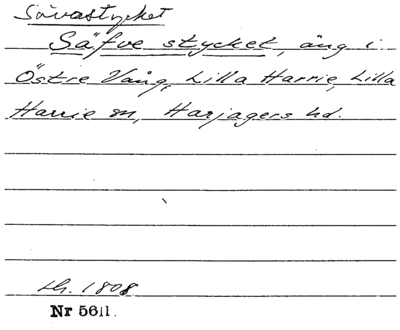 Sävastycket
Säfve stycket, äng i
Östre Vång, Lilla Harrie, Lilla
Harrie sn, Harjagers hd.
Lh. 1808
Nr 5611.